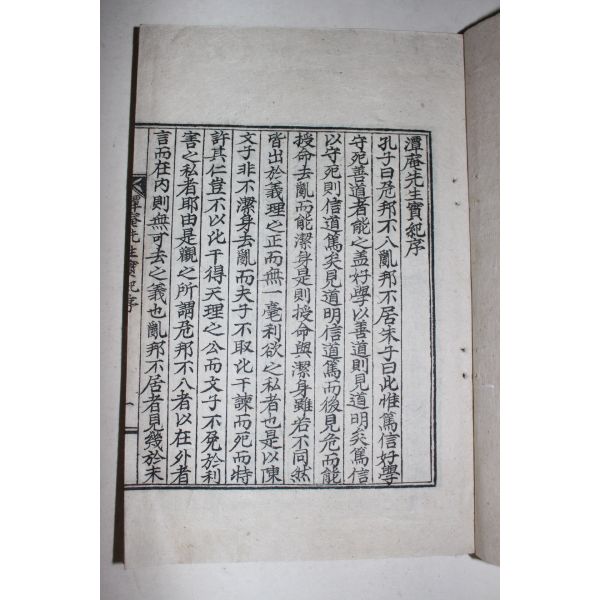 潭庵先生實紀序
孔子曰危邦不入亂邦不居朱子曰此惟篤信好學
守死善道者能之盖好學以善道則見道明矣篤信
以守死則信道篤矣見道明信道篤而後見危而能
授命去亂而能潔身是則授命與潔身雖若不同然
皆出於義理之正而無一毫利欲之私者也是以陳
文子非不潔身去亂而夫子不取比干諫而死而特
許其仁豈不以比干得天理之公而文子不免於利
害之私者耶由是觀之所謂危邦不入者以在外者
言而在內則無可去之義也亂邦不居者見幾於未
潭庵先生實紀序
一